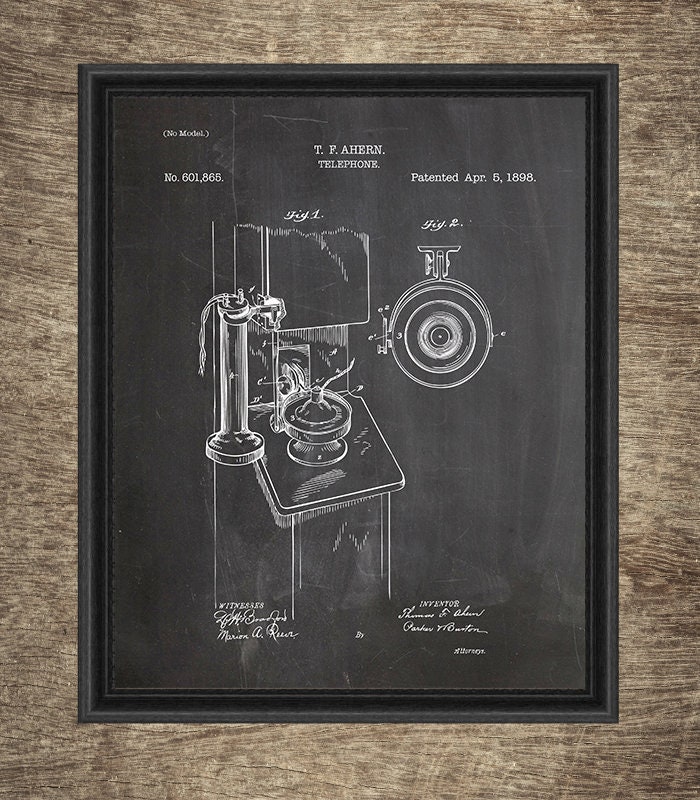 (No Model.)
T. F. AHERN.
TELEPHONE.
No. 601,865.
Patented Apr. 5, 1898.
Fig. 1.
Fig. 2.
WITNESSES
Marion A. Reeve
By
INVENTOR
Thomas F. Ahern
Parker & Burton
Attorneys.